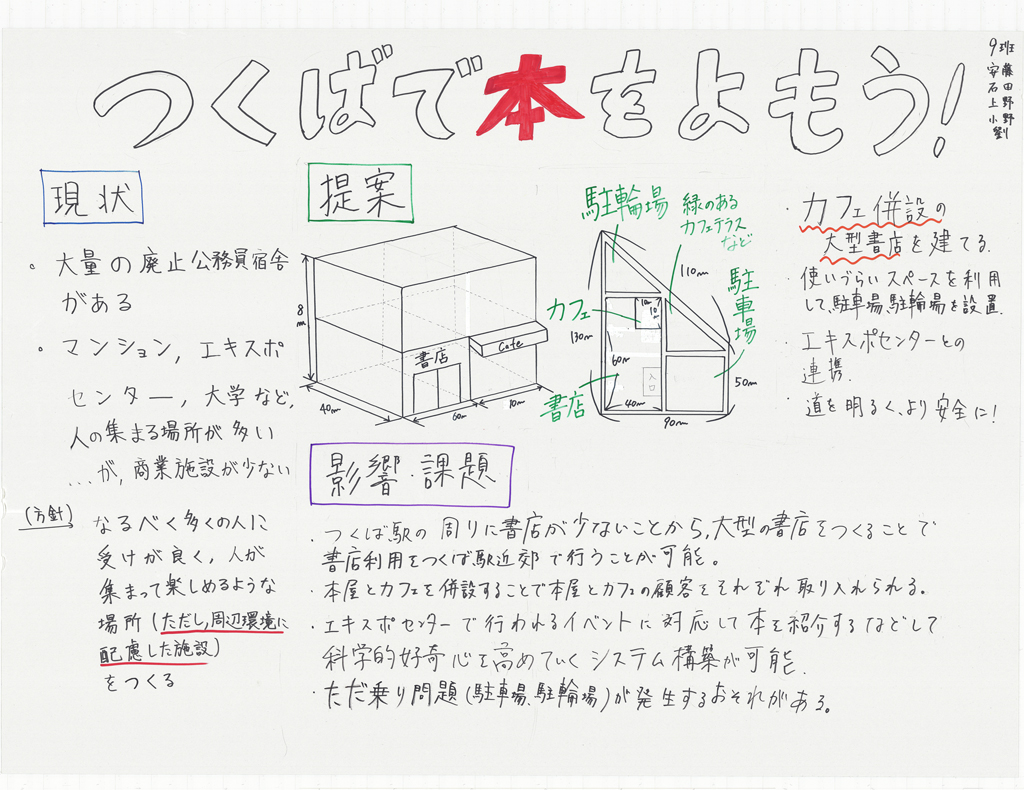 つくばで本をよもう!
9班
藤田野野劉
安石上小
現状
。大量の廃止公務員宿舎
がある
・マンション,エキスポ
センター,大学など,
人の集まる場所が多い
...が,商業施設が少ない
(方針)
なるべく多くの人に
受けが良く,人が
集まって楽しめるような
場所(ただし,周辺環境に
配慮した施設)
をつくる
提案
8m
書店
Cafe
40m
60m
10m
駐輪場
緑のある
カフェテラス
など
110m
駐車場
カフェ
10m
10
130m
60m
入口
書店
40m
50m
90m
・カフェ併設の
大型書店を建てる.
・使いづらいスペースを利用
して,駐車場,駐輪場を設置.
・エキスポセンターとの
連携.
・道を明るく,より安全に!
影響・課題
・つくば駅の周りに書店が少ないことから,大型の書店をつくることで
書店利用をつくば駅近郊で行うことが可能。
・本屋とカフェを併設することで本屋とカフェの顧客をそれぞれ取り入れられる。
・エキスポセンターで行われるイベントに対応して本を紹介するなどして
科学的好奇心を高めていくシステム構築が可能.
・ただ乗り問題(駐車場,駐輪場)が発生するおそれがある。